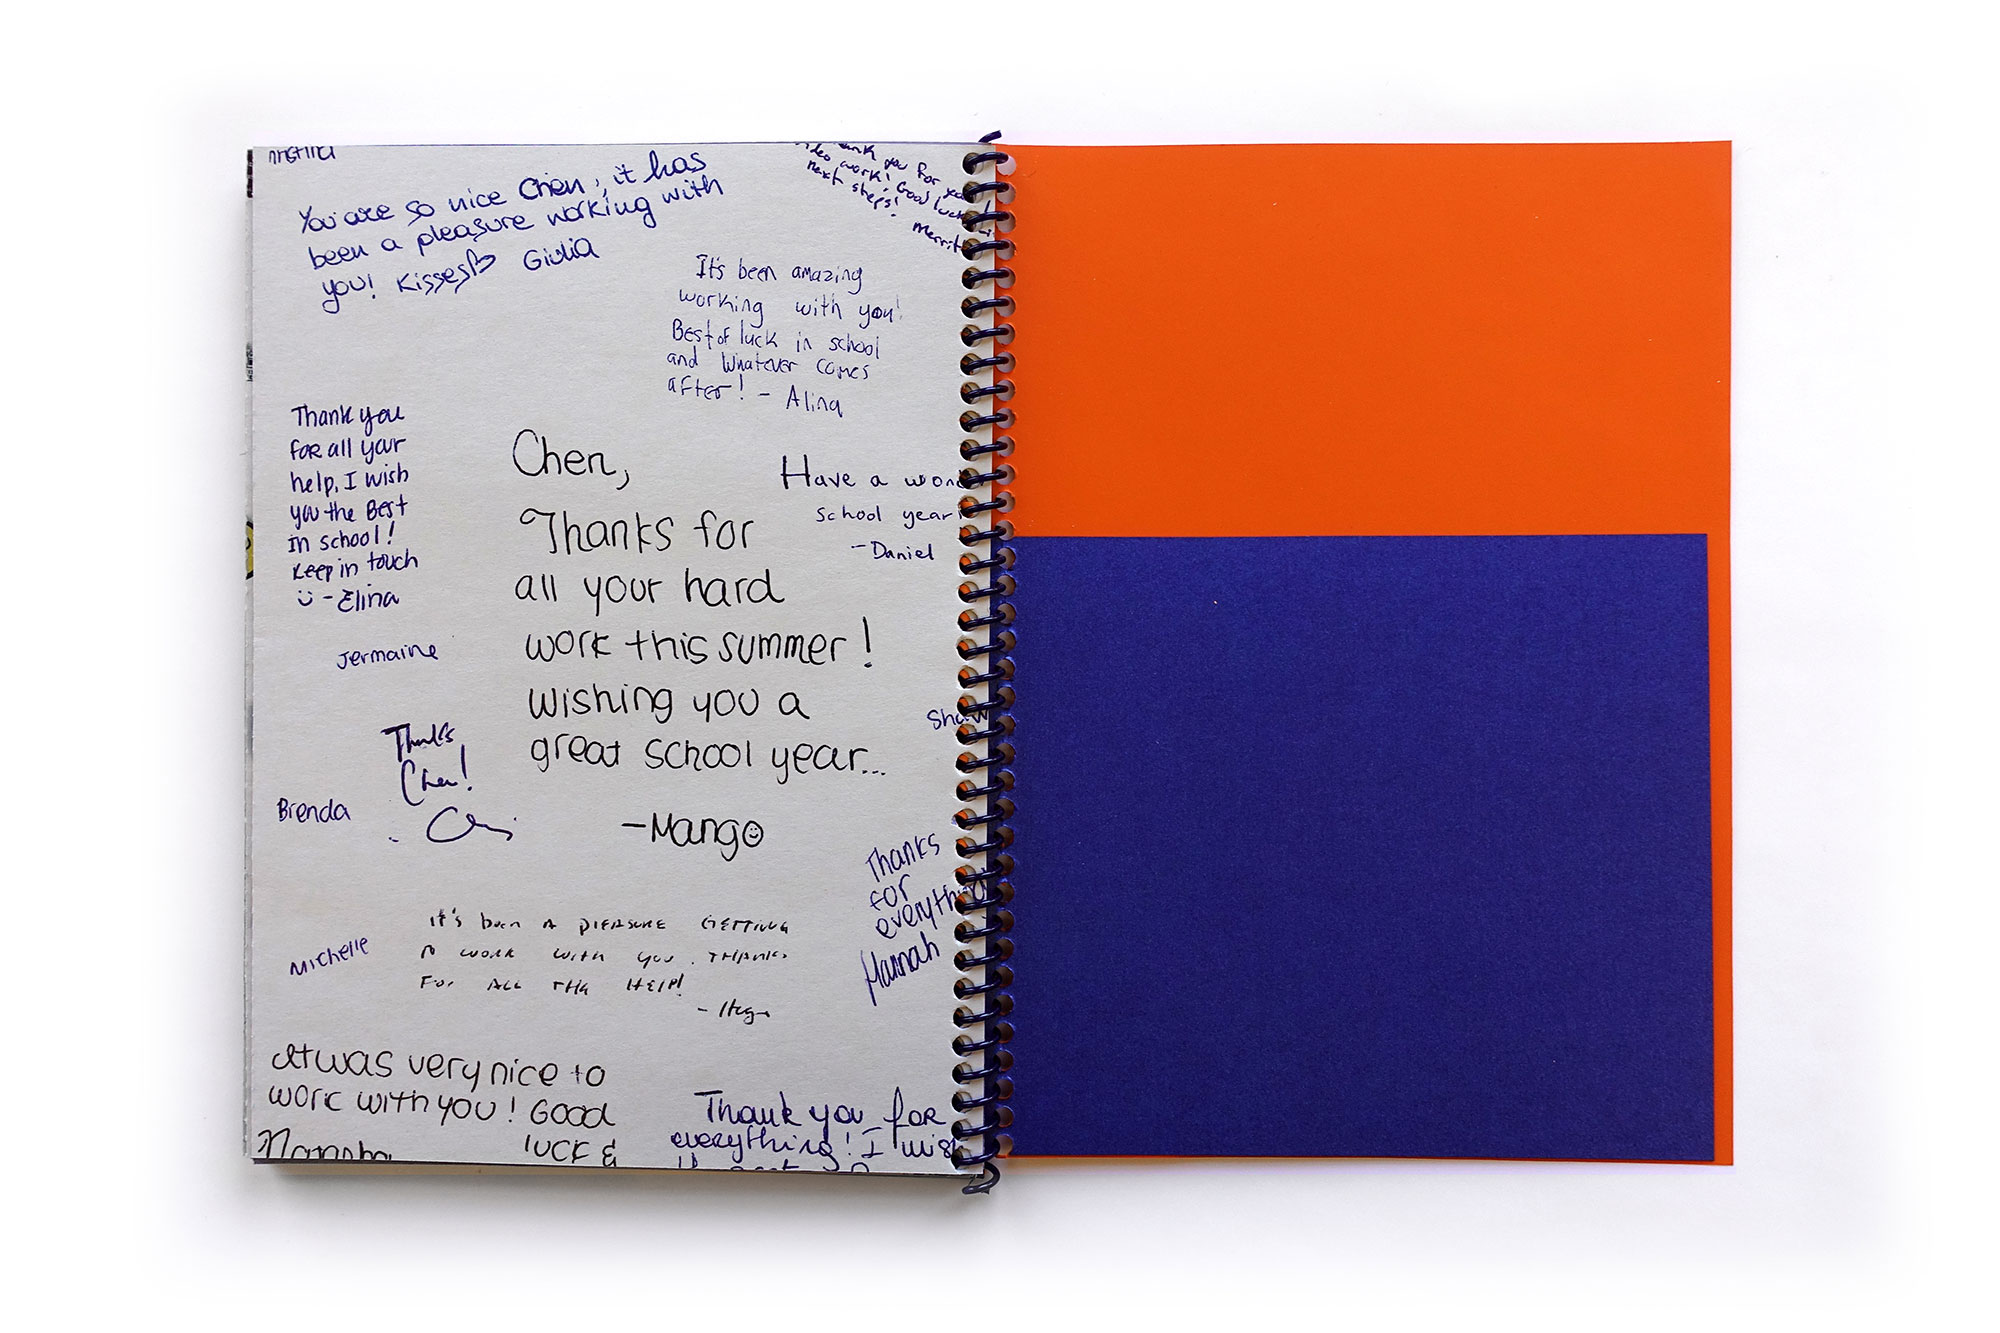 You are so nice Chen, it has
been a pleasure working with
you! Kisses Giulia
you for
video work! Good luck
next steps!
It's been amazing
working with you!
Best of luck in school
and whatever comes
after! - Alina
Thank you
for all your
help, I wish
you the Best
in school!
Keep in touch
- Elina
Chen,
Thanks for
all your hard
work this summer!
Wishing you a
great school year...
-Mango
Have a
school year
-Daniel
Jermaine
Thanks
Chen!
Brenda
Thanks
for
everything
Hannah
Michelle
It's been a pleasure getting
to work with you. Thanks
for all the help!
It was very nice to
work with you! Good
luck &
Thank you for
everything! I wish